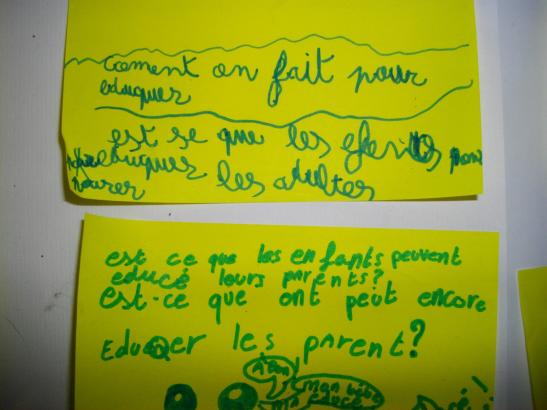 Coment on fait pour
éduquer
est se que les efants
éduquer les adultes
est ce que les enfants peuvent
educé leurs parents?
est-ce que ont peut encore
Eduquer les parent?
mon bébé